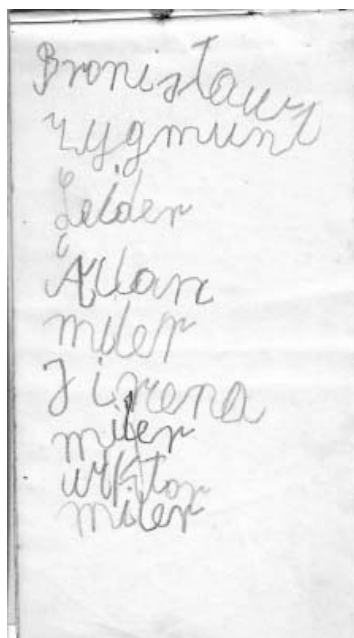 Bronisław
Zygmunt
Lelder
Allan
miler
J irena
miler
wiktor
miler